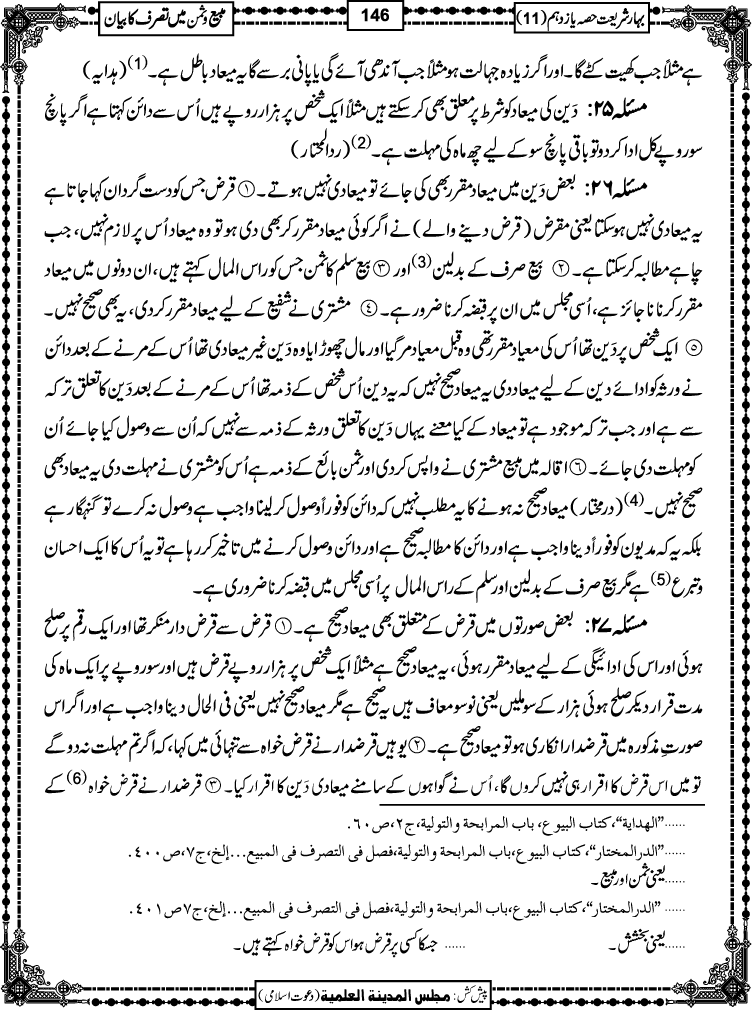 بہارِ شریعت حصہ یازدہم (11)
146
مبیع و ثمن میں تصرف کا بیان
ہے مثلاً جب کھیت کٹے گا۔ اور اگر زیادہ جہالت ہو مثلاً جب آندھی آئے گی یا پانی برسے گا یہ میعاد باطل ہے۔(1) (ہدایہ)
مسئلہ ۲۵: دَین کی میعاد کو شرط پر معلق بھی کرسکتے ہیں مثلاً ایک شخص پر ہزار روپے ہیں اُس سے دائن کہتا ہے اگر پانچ
سو روپے کل ادا کردو تو باقی پانچ سو کے لیے چھ ماہ کی مہلت ہے۔(2) (ردالمحتار)
مسئلہ ۲۶: بعض دَین میں میعاد مقرر بھی کی جائے تو میعادی نہیں ہوتے۔ ① قرض جس کو دست گرداں کہا جاتا ہے
یہ میعادی نہیں ہوسکتا یعنی مقرض (قرض دینے والے) نے اگر کوئی میعاد مقرر کر بھی دی ہو تو وہ میعاد اُس پر لازم نہیں، جب
چاہے مطالبہ کرسکتا ہے۔ ② بیع صرف کے بدلین(3) اور ③ بیع سلم کا ثمن جس کو راس المال کہتے ہیں، ان دونوں میں میعاد
مقرر کرنا نا جائز ہے، اُسی مجلس میں ان پر قبضہ کرنا ضرور ہے۔ ④ مشتری نے شفیع کے لیے میعاد مقرر کردی، یہ بھی صحیح نہیں۔
⑤ ایک شخص پر دَین تھا اُس کی میعاد مقرر تھی وہ قبل معیاد مر گیا اور مال چھوڑا یا وہ دَین غیر میعادی تھا اُس کے مرنے کے بعد دائن
نے ورثہ کو ادائے دین کے لیے میعاد دی یہ میعاد صحیح نہیں کہ یہ دین اُس شخص کے ذمہ تھا اُس کے مرنے کے بعد دَین کا تعلق ترکہ
سے ہے اور جب ترکہ موجود ہے تو میعاد کے کیا معنے یہاں دَین کا تعلق ورثہ کے ذمہ سے نہیں کہ اُن سے وصول کیا جائے اُن
کو مہلت دی جائے۔ ⑥ اقالہ میں مبیع مشتری نے واپس کردی اور ثمن بائع کے ذمہ ہے اُس کو مشتری نے مہلت دی یہ میعاد بھی
صحیح نہیں۔(4) (درمختار) میعاد صحیح نہ ہونے کا یہ مطلب نہیں کہ دائن کو فوراً وصول کر لینا واجب ہے وصول نہ کرے تو گنہگار ہے
بلکہ یہ کہ مدیون کو فوراً دینا واجب ہے اور دائن کا مطالبہ صحیح ہے اور دائن وصول کرنے میں تاخیر کررہا ہے تو یہ اُس کا ایک احسان
و تبرع(5) ہے مگر بیع صرف کے بدلین اور سلم کے راس المال پر اُسی مجلس میں قبضہ کرنا ضروری ہے۔
مسئلہ ۲۷: بعض صورتوں میں قرض کے متعلق بھی میعاد صحیح ہے۔ ① قرض سے قرض دار منکر تھا اور ایک رقم پر صلح
ہوئی اور اس کی ادائیگی کے لیے میعاد مقرر ہوئی، یہ میعاد صحیح ہے مثلاً ایک شخص پر ہزار روپے قرض ہیں اور سو روپے پر ایک ماہ کی
مدت قرار دیکر صلح ہوئی ہزار کے سو ملیں یعنی نو سو معاف ہیں یہ صحیح ہے مگر میعاد صحیح نہیں یعنی فی الحال دینا واجب ہے اور اگر اس
صورتِ مذکورہ میں قرضدار انکاری ہو تو میعاد صحیح ہے۔ ② یوہیں قرضدار نے قرض خواہ سے تنہائی میں کہا، کہ اگر تم مہلت نہ دو گے
تو میں اس قرض کا اقرار ہی نہیں کروں گا، اُس نے گواہوں کے سامنے میعادی دَین کا اقرار کیا۔ ③ قرضدار نے قرض خواہ(6) کے
......”الھدایة“، کتاب البیوع، باب المرابحة والتولیة، ج۲، ص۶۰.
......”الدرالمختار“، کتاب البیوع، باب المرابحة والتولیة، فصل فی التصرف فی المبیع...إلخ، ج۷، ص۴۰۰.
......یعنی ثمن اور مبیع۔
......”الدرالمختار“، کتاب البیوع، باب المرابحة والتولیة، فصل فی التصرف فی المبیع...إلخ، ج۷ص۴۰۱.
......یعنی بخشش۔ ...... جسکا کسی پر قرض ہو اس کو قرض خواہ کہتے ہیں۔
پیش کش: مجلس المدینة العلمیة (دعوت اسلامی)